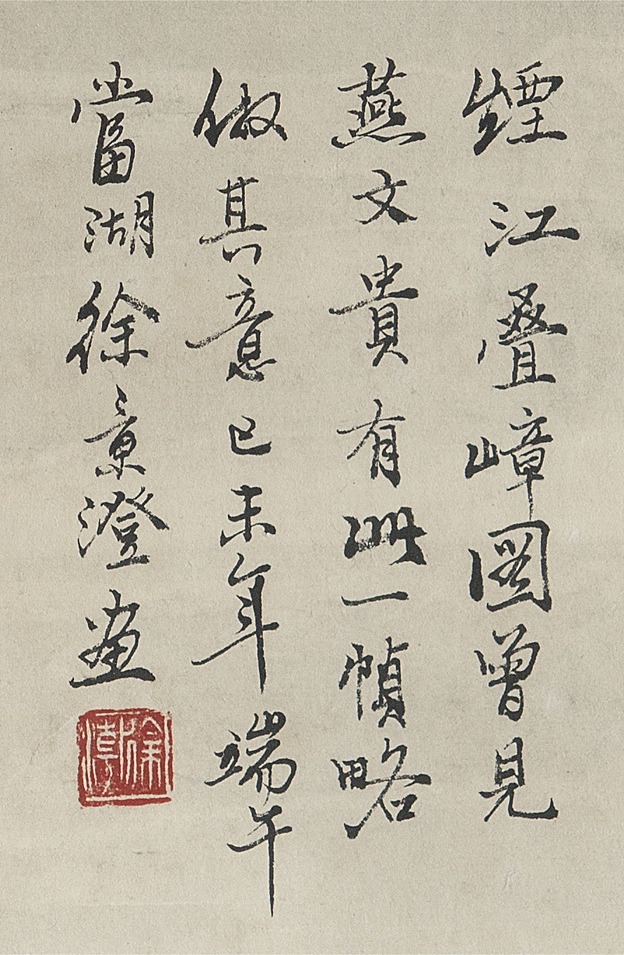 煙江叠嶂圖曾見
燕文貴有此一幀略
倣其意己未年端午
當湖徐景澄畫
徐潮